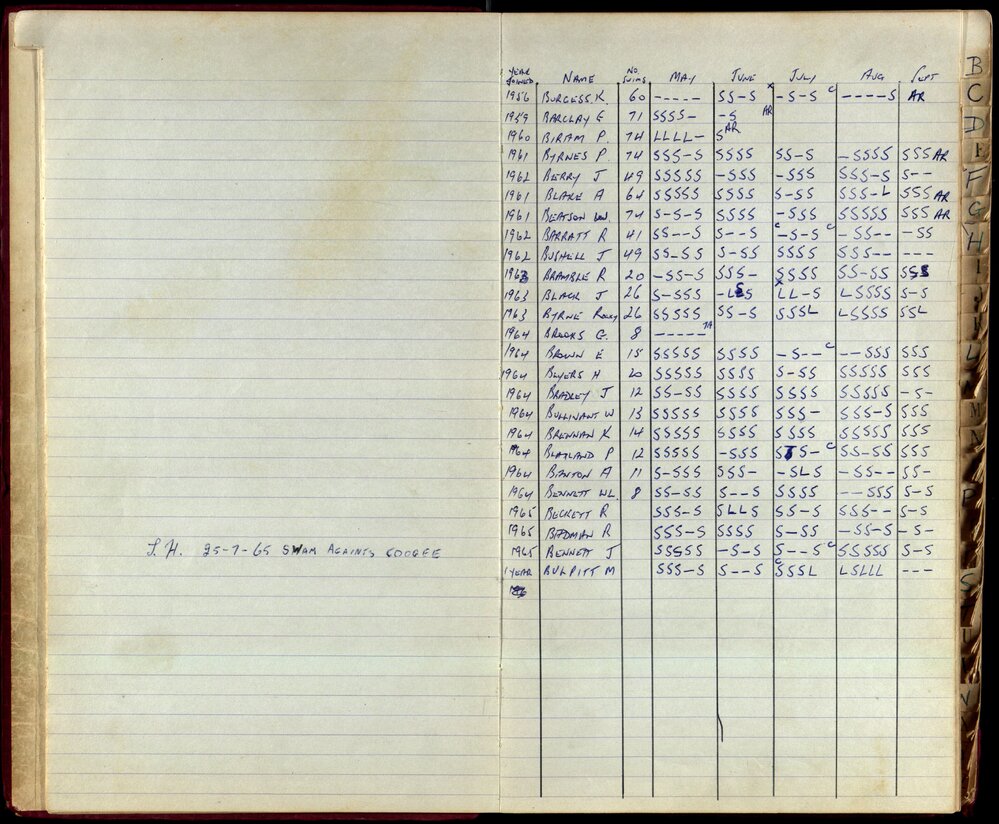 J.H. 25-7-65 SWAM AGAINTS COOGEE
YEAR JOINED NAME NO SWIMS MAY JUNE JULY AUG SEPT
1956 BURGESS K. 60 ----- SS-S x -S-S c ----S AR
1959 BARCLAY E 71 SSSS- -S AR
1960 BIRAM P. 74 LLLL- S AR
1961 BYRNES P. 74 SSS-S SSSS SS-S -SSSS SSS AR
1962 BERRY J 49 SSSSS -SSS -SSS SSS-S S--
1961 BLAKE A 64 SSSSS SSSS S-SS SSS-L SSS AR
1961 BEATSON 74 S-S-S SSSS -SSS SSSSS SSS AR
1962 BARRATT R 41 SS--S S--S c -S-S c -SS-- -SS
1962 BUSHELL J 49 SS-SS S-SS SSSS SSS-- ---
1963 BRAMBLE R 20 -SS-S SSS- SSSS SS-SS SSS
1963 BLACK J 26 S-SSS -LSS x LL-S LSSSS S-S
1963 BYRNE ROXY 26 SSSSS SS-S SSSL LSSSS SSL
1964 BROOKS G. 8 -----
1964 BROWN E 15 SSSSS SSSS -S-- c --SSS SSS
1964 BLYERS H 20 SSSSS SSSS S-SS SSSSS SSS
1964 BRADLEY J 12 SS-SS SSSS SSSS SSSSS -S-
1964 BULLIVANT W 13 SSSSS SSSS SSS- SSS-S SSS
1964 BRENNAN K 14 SSSSS SSSS SSSS SSSSS SSS
1964 BLAYLAND P 12 SSSSS -SSS S S- c SS-SS SSS
1964 BENTON A 11 S-SSS SSS- -SLS -SS-- SS-
1964 BENNETT WL. 8 SS-SS S--S SSSS --SSS S-S
1965 BECKETT R SSS-S SLLS S-SS SSS-- S-S
1965 BADMAN R SSS-S SSSS S-SS -SS-S S-S
1965 BENNETT J SSSSS -S-S S--S c SSSSS S-S
1 YEAR BULPITT M SSS-S S--S c SSSL LSLLL ---
B
C
D
F
G
H
I
L
M
N
P
S
U
V